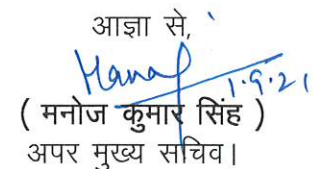 आज्ञा से,
Manoj
1.9.21
( मनोज कुमार सिंह )
अपर मुख्य सचिव।